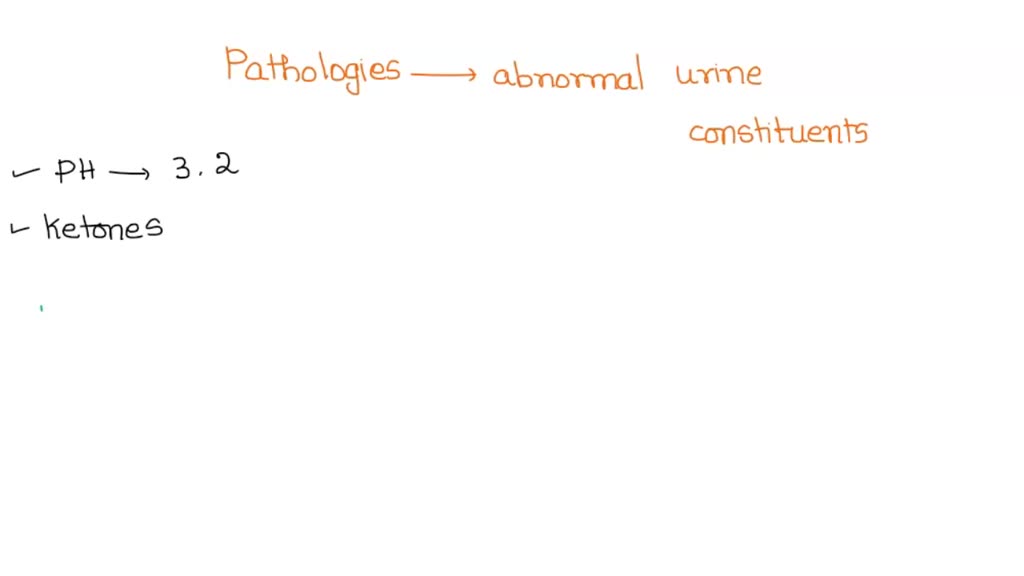 Pathologies → abnormal urine
constituents
✓ PH → 3.2
✓ Ketones